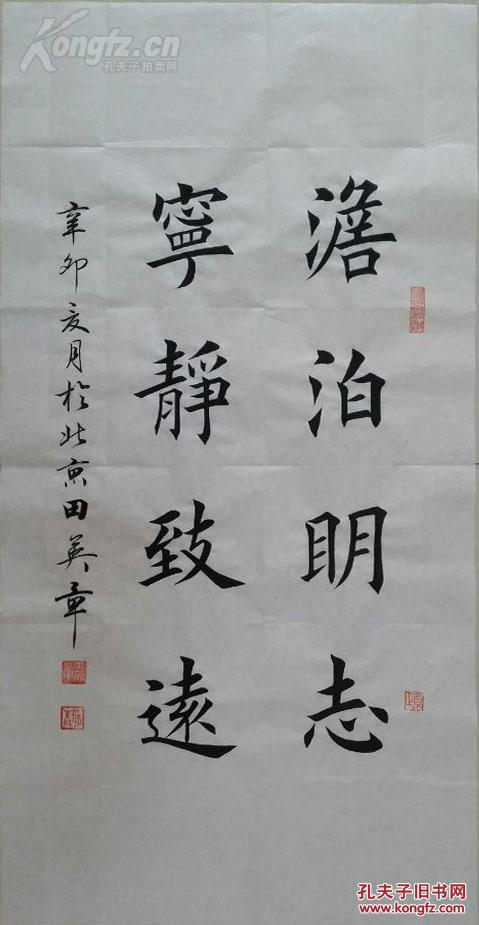 Kongfz.cn
孔夫子拍卖网
澹泊明志
寧靜致遠
辛卯夏月於北京田英章
孔夫子旧书网
www.kongfz.com